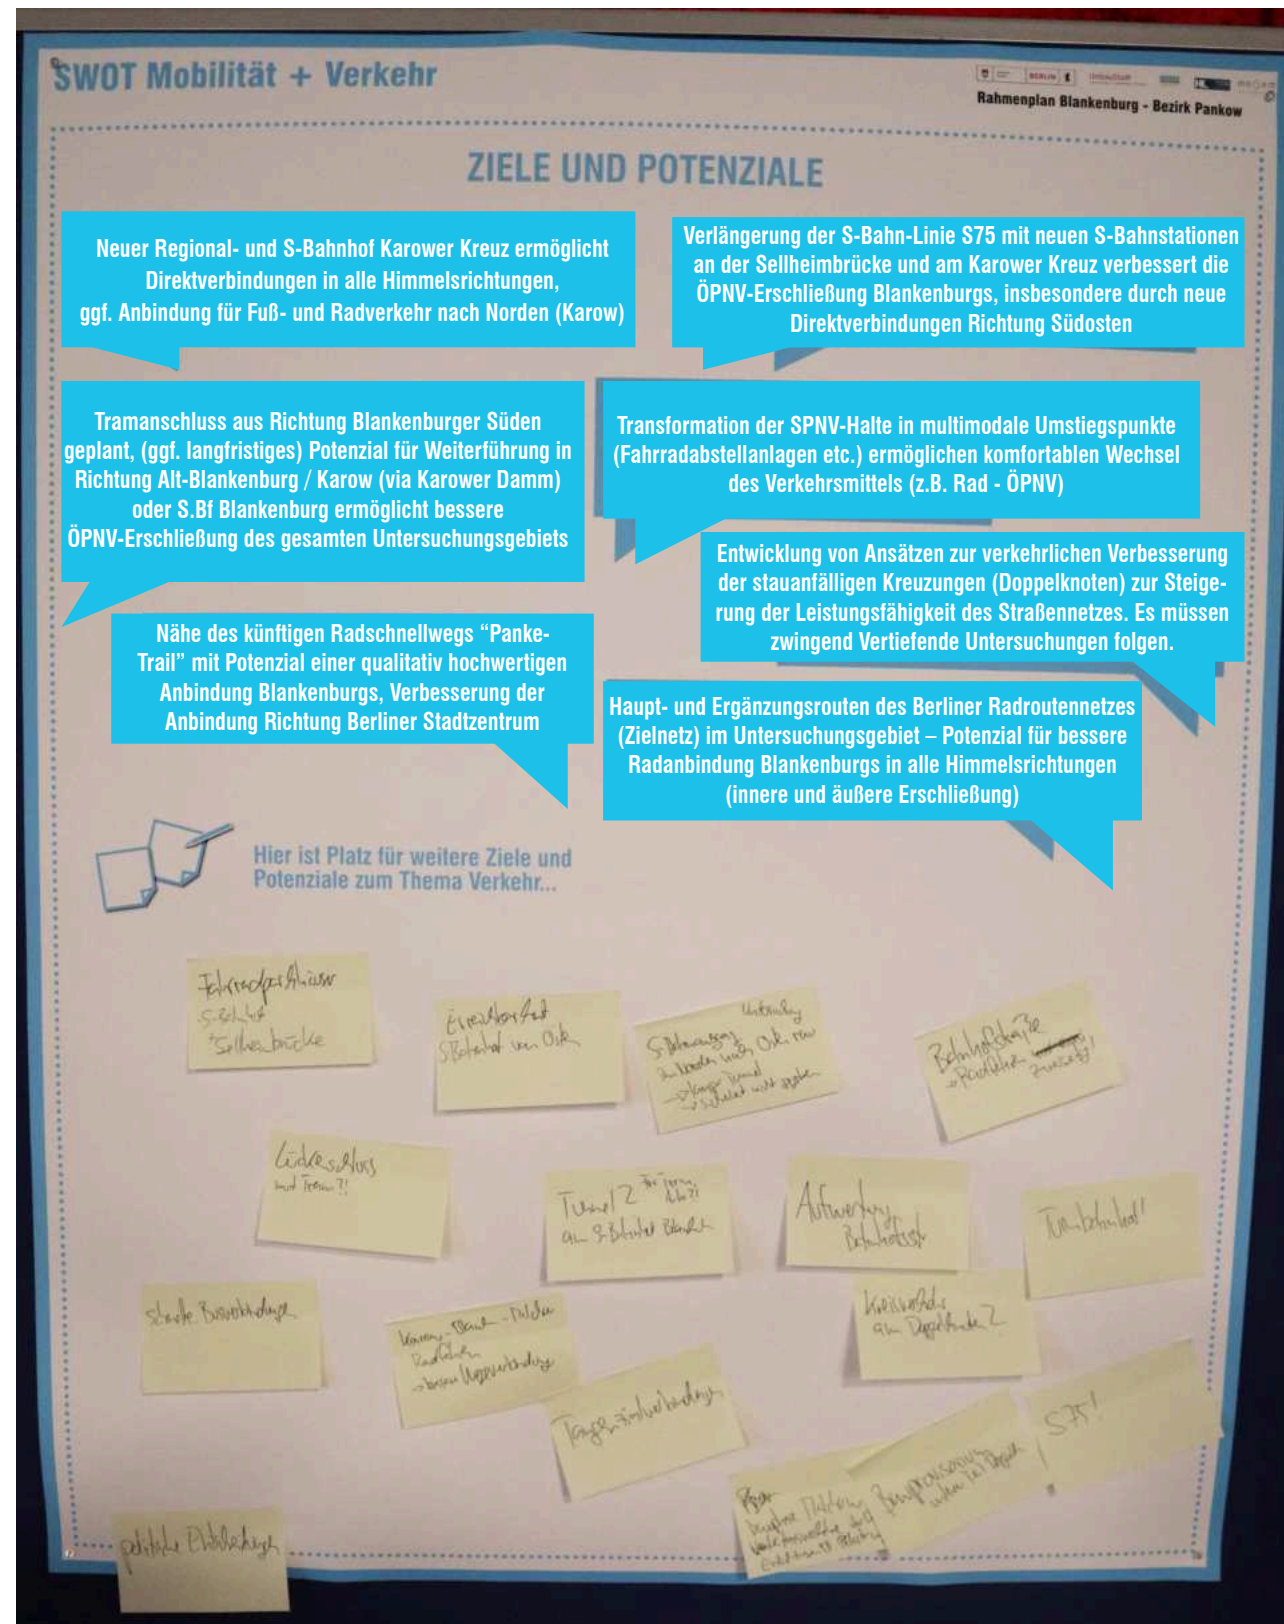 SWOT Mobilität + Verkehr
BERLIN
Rahmenplan Blankenburg - Bezirk Pankow
ZIELE UND POTENZIALE
Neuer Regional- und S-Bahnhof Karower Kreuz ermöglicht
Direktverbindungen in alle Himmelsrichtungen,
ggf. Anbindung für Fuß- und Radverkehr nach Norden (Karow)
Verlängerung der S-Bahn-Linie S75 mit neuen S-Bahnstationen
an der Sellheimbrücke und am Karower Kreuz verbessert die
ÖPNV-Erschließung Blankenburgs, insbesondere durch neue
Direktverbindungen Richtung Südosten
Tramanschluss aus Richtung Blankenburger Süden
geplant, (ggf. langfristiges) Potenzial für Weiterführung in
Richtung Alt-Blankenburg / Karow (via Karower Damm)
oder S.Bf Blankenburg ermöglicht bessere
ÖPNV-Erschließung des gesamten Untersuchungsgebiets
Transformation der SPNV-Halte in multimodale Umstiegspunkte
(Fahrradabstellanlagen etc.) ermöglichen komfortablen Wechsel
des Verkehrsmittels (z.B. Rad - ÖPNV)
Entwicklung von Ansätzen zur verkehrlichen Verbesserung
der stauanfälligen Kreuzungen (Doppelknoten) zur Steige-
rung der Leistungsfähigkeit des Straßennetzes. Es müssen
zwingend Vertiefende Untersuchungen folgen.
Nähe des künftigen Radschnellwegs “Panke-
Trail” mit Potenzial einer qualitativ hochwertigen
Anbindung Blankenburgs, Verbesserung der
Anbindung Richtung Berliner Stadtzentrum
Haupt- und Ergänzungsrouten des Berliner Radroutennetzes
(Zielnetz) im Untersuchungsgebiet – Potenzial für bessere
Radanbindung Blankenburgs in alle Himmelsrichtungen
(innere und äußere Erschließung)
Hier ist Platz für weitere Ziele und
Potenziale zum Thema Verkehr...
Fahrradparkhäuser
S-Bahnhof
Erreichbarkeit
S Bahnhof von Osten
nach Osten
→ langer Tunnel
Bahnhofstraße
Lückenschluss
mit Tram?!
Tunnel
am S-Bahnhof
Aufwertung
Bahnhofsstr
Turmbahnhof!
schnelle Busverbindungen
Radfahren
→ bessere Wegeverbindung
Kreisverkehr
am Doppelknoten
Tangentialverbindungen
S75!
politische Entscheidungen